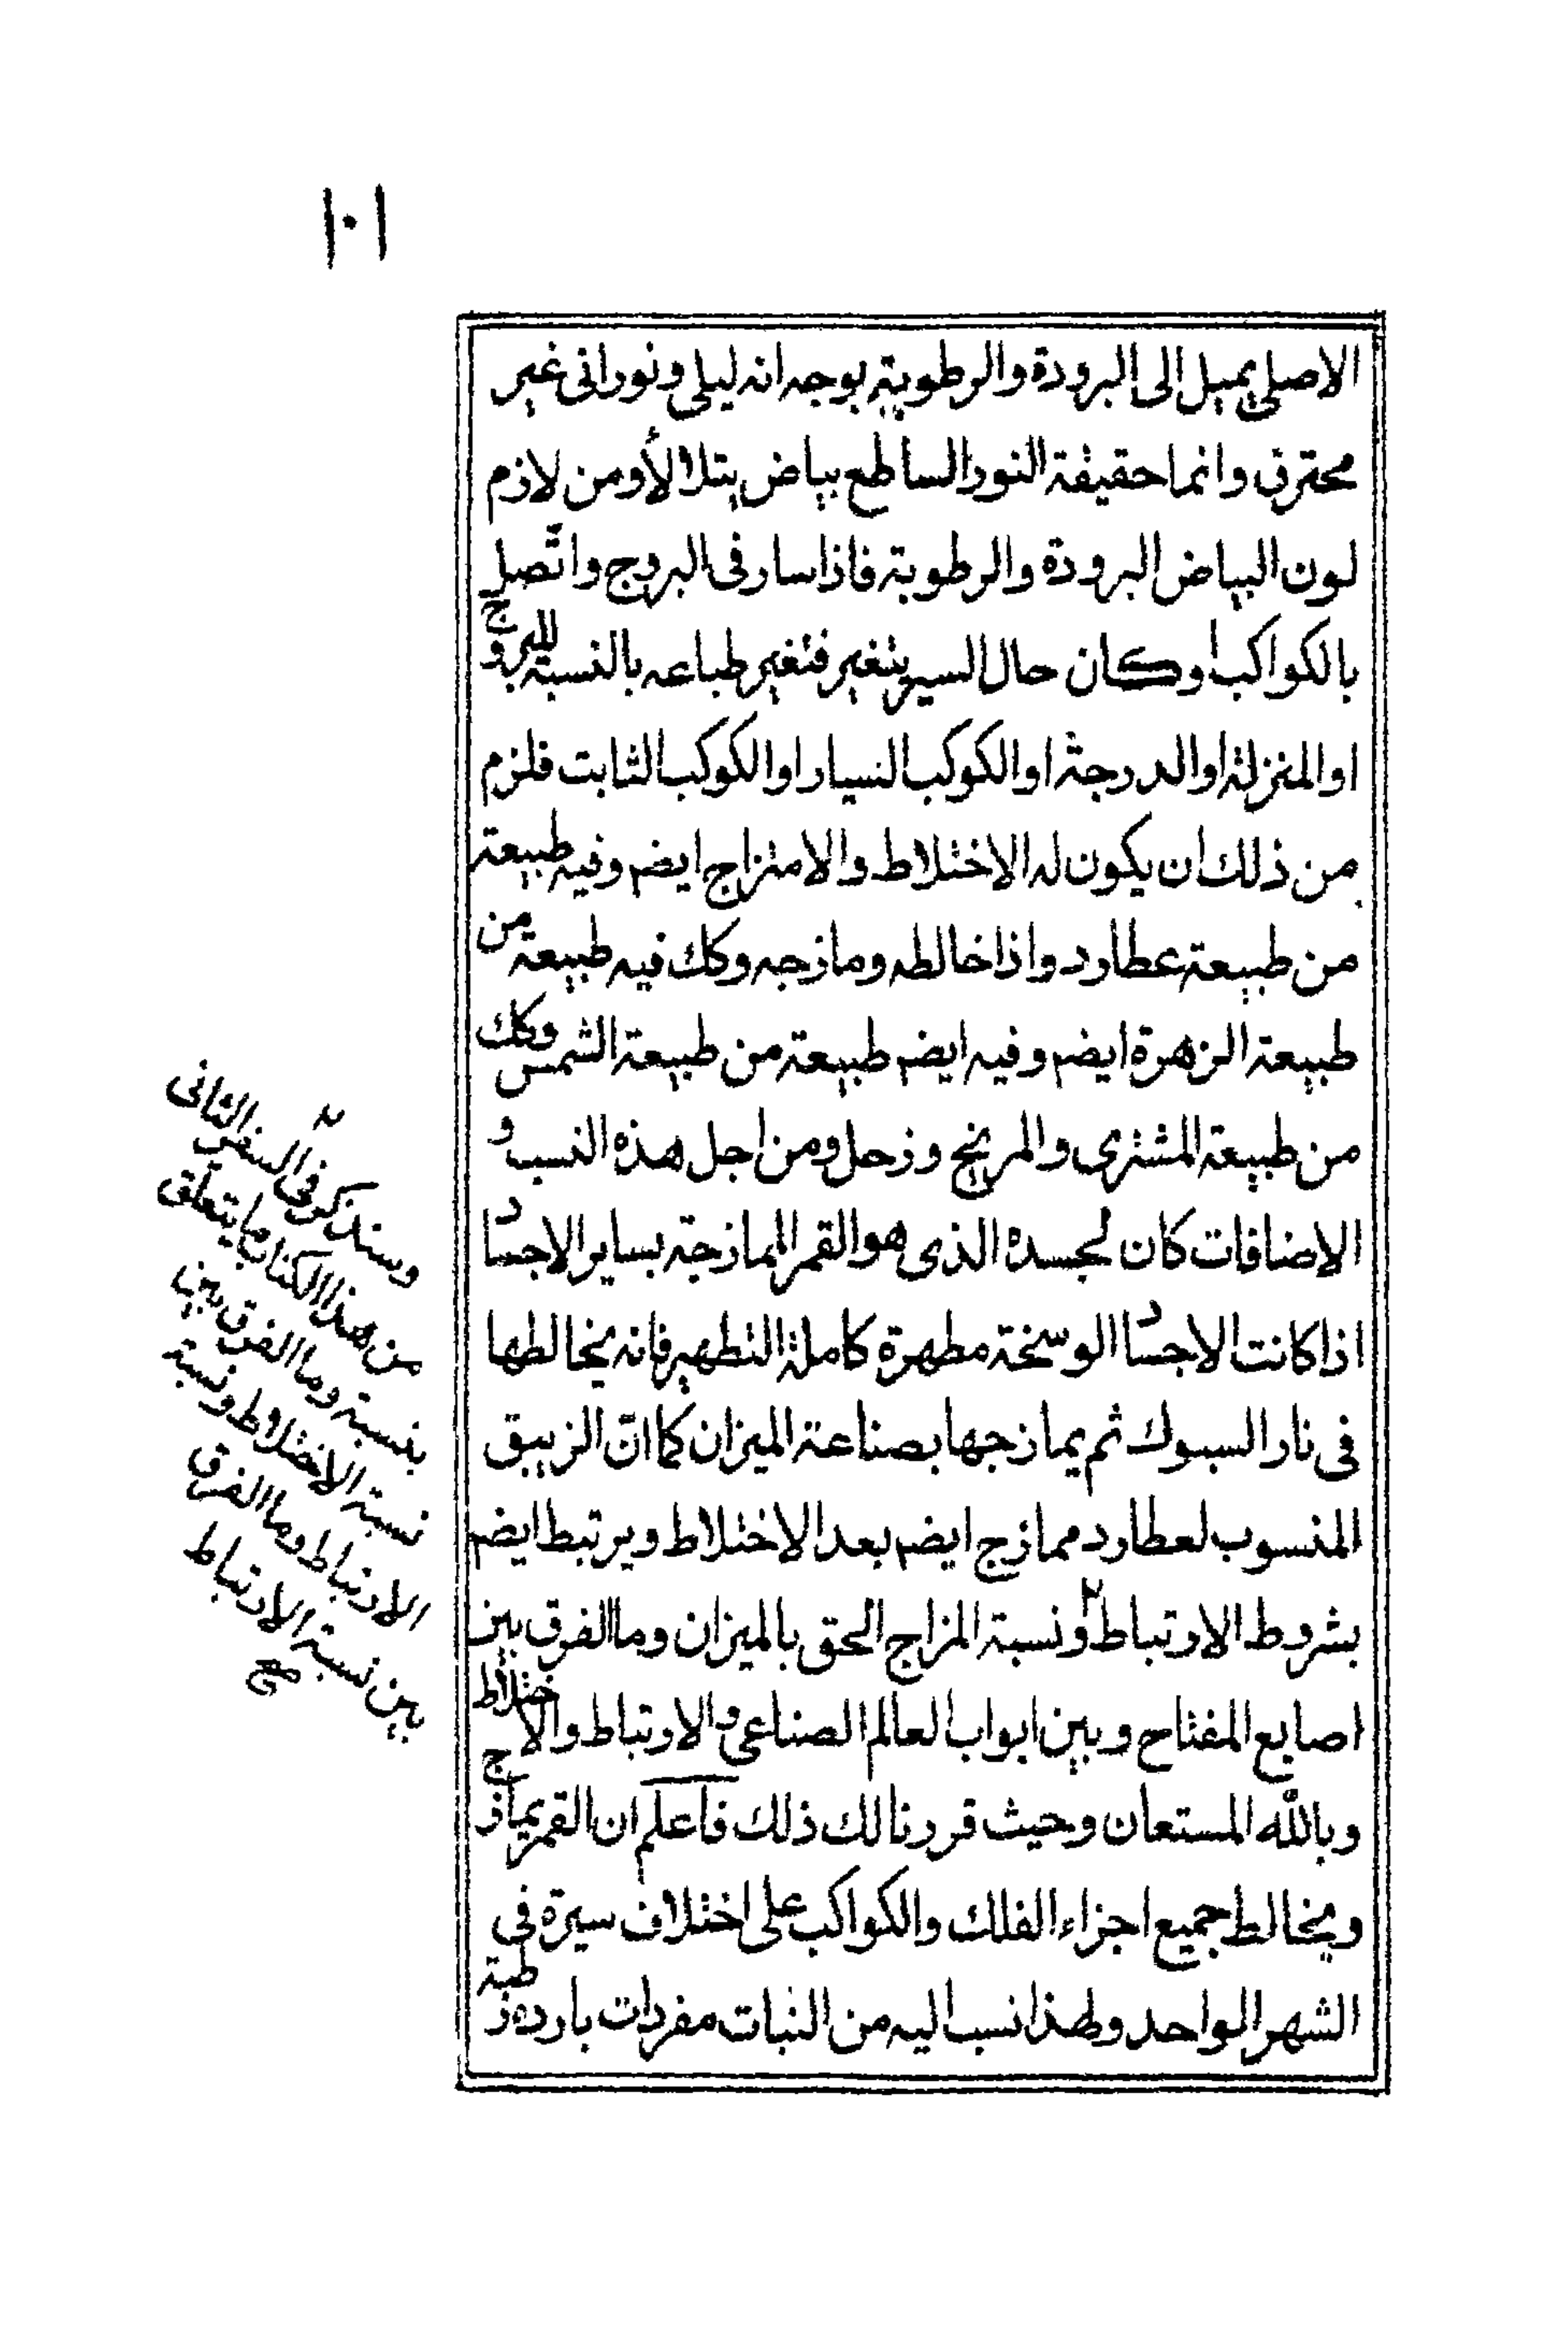 ١٠١
الاصلي يميل الى البرودة والرطوبة بوجه انه ليلى ونورانى غير
محترق وانما حقيقة النور الساطع بياض يتلالأ ومن لازم
لون البياض البرودة والرطوبة فاذا سار فى البروج واتّصل
بالكواكب او كان حال السير يتغير فتغير طباعه بالنسبة للبروج
او المنزلة او الدرجة او الكوكب السيار او الكوكب الثابت فلزم
من ذلك ان يكون له الاختلاط والامتزاج ايضم وفيه طبيعة
من طبيعة عطارد واذا خالطه ومازجه وكك فيه طبيعة من
طبيعة الزهرة ايضم وفيه ايضم طبيعة من طبيعة الشمس وكك
من طبيعة المشترى والمريخ وزحل ومن اجل هذه النسب و
الاضافات كان لجسده الذى هو القمر الممازجة بساير الاجساد
اذا كانت الاجساد الوسخة مطهرة كاملة التطهير فانه يخالطها
فى نار السبوك ثم يمازجها بصناعة الميزان كما انّ الزيبق
المنسوب لعطارد ممازج ايضم بعد الاختلاط ويرتبط ايضم
بشروط الارتباط ٢ ونسبة المزاج الحق بالميزان وما الفرق بين
اصابع المفتاح وبين ابواب العالم الصناعى والارتباط والاختلاط
وبالله المستعان وحيث قررنا لك ذلك فاعلم ان القمر يمازج
ويخالط جميع اجزاء الفلك والكواكب على اختلاف سيرة في
الشهر الواحد ولهذا نسب اليه من النبات مفردات بارده رطبة
٢
وسنذكر فى السفر الثانى
من هذا الكتاب ما يتعلّق
بنسبة وما الفرق بين
نسبة الاختلاط ونسبة
الارتباط وما الفرق
بين نسبة الارتباط
صح